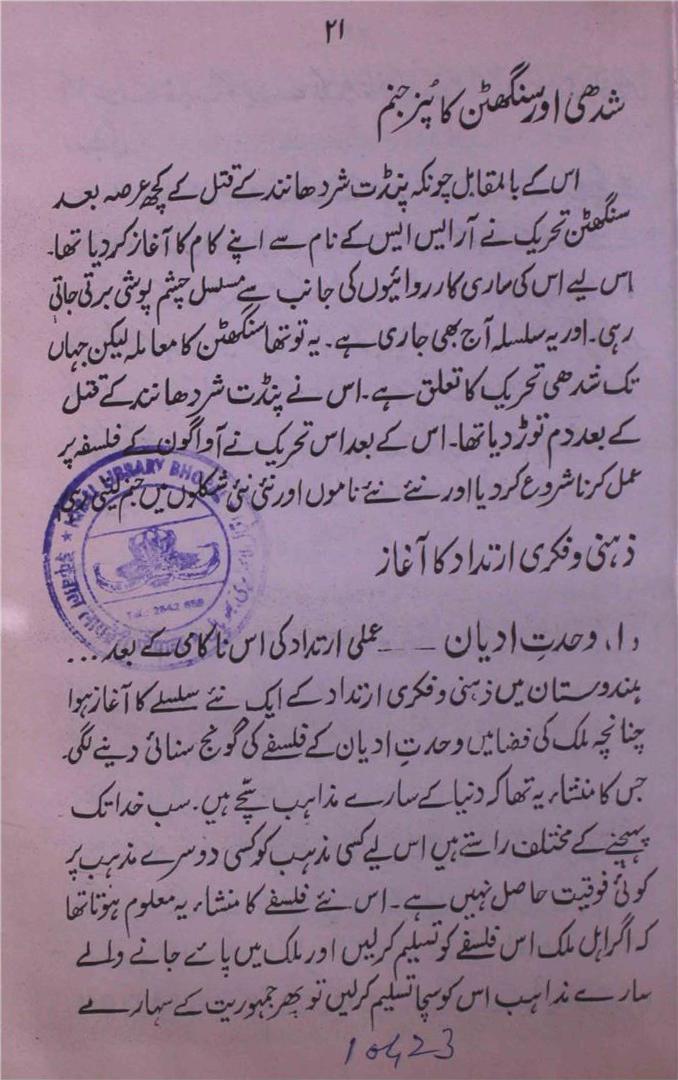 ۲۱
شدھی اور سنگھٹن کا پُنر جنم
اس کے بالمقابل چونکہ پنڈت شردھانند کے قتل کے کچھ عرصہ بعد
سنگھٹن تحریک نے آر ایس ایس کے نام سے اپنے کام کا آغاز کر دیا تھا۔
اس لیے اس کی ساری کارروائیوں کی جانب سے مسلسل چشم پوشی برتی جاتی
رہی۔ اور یہ سلسلہ آج بھی جاری ہے۔ یہ تو تھا سنگھٹن کا معاملہ لیکن جہاں
تک شدھی تحریک کا تعلق ہے۔ اس نے پنڈت شردھانند کے قتل
کے بعد دم توڑ دیا تھا۔ اس کے بعد اس تحریک نے آواگون کے فلسفہ پر
عمل کرنا شروع کر دیا اور نئے نئے ناموں اور نئی نئی شکلوں میں جنم لیتی رہی
ذہنی و فکری ارتداد کا آغاز
۱، وحدتِ ادیان ــ ــ عملی ارتداد کی اس ناکامی کے بعد ...
ہندوستان میں ذہنی و فکری ارتداد کے ایک نئے سلسلے کا آغاز ہوا
چنانچہ ملک کی فضا میں وحدتِ ادیان کے فلسفے کی گونج سنائی دینے لگی۔
جس کا منشاء یہ تھا کہ دنیا کے سارے مذاہب سچّے ہیں۔ سب خدا تک
پہنچنے کے مختلف راستے ہیں اس لیے کسی مذہب کو کسی دوسرے مذہب پر
کوئی فوقیت حاصل نہیں ہے۔ اس نئے فلسفے کا منشاء یہ معلوم ہوتا تھا
کہ اگر اہل ملک اس فلسفے کو تسلیم کرلیں اور ملک میں پائے جانے والے
سارے مذاہب اس کو سچا تسلیم کرلیں تو پھر جمہوریت کے سہارے
LIBRARY BHO